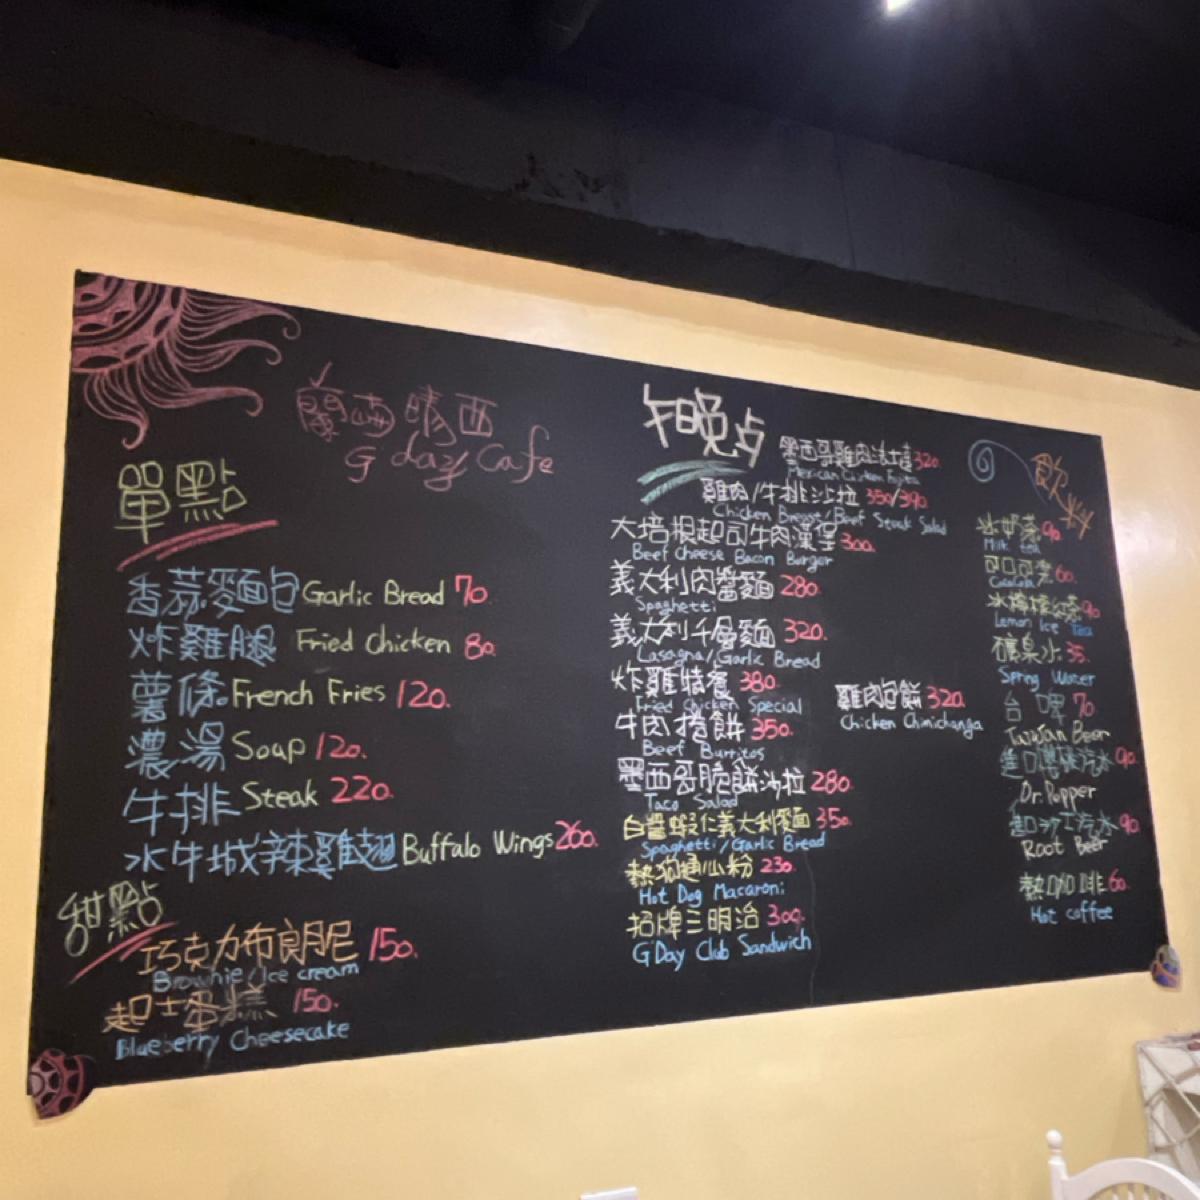 蘭嶼晴西
G'day Cafe
單點
香蒜麵包 Garlic Bread 70.
炸雞腿 Fried Chicken 80.
薯條 French Fries 120.
濃湯 Soup 120.
牛排 Steak 220.
水牛城辣雞翅 Buffalo Wings 260.
甜點
巧克力布朗尼 150.
Brownie/Ice cream
起士蛋糕 150.
Blueberry Cheesecake
午晚点
墨西哥雞肉法士達 320.
Mexican Chicken Fajita
雞肉/牛排沙拉 350/390.
Chicken Breast/Beef Steak Salad
大培根起司牛肉漢堡 300.
Beef Cheese Bacon Burger
義大利肉醬麵 280.
Spaghetti
義大利千層麵 320.
Lasagna/Garlic Bread
炸雞特餐 380.
Fried Chicken Special
牛肉捲餅 350.
Beef Burritos
墨西哥脆餅沙拉 280.
Taco Salad
白醬蝦仁義大利麵 350.
Spaghetti/Garlic Bread
熱狗通心粉 230.
Hot Dog Macaroni
招牌三明治 300.
G'Day Club Sandwich
雞肉包餅 320.
Chicken Chimichanga
飲料
冰奶茶 90.
Milk tea
可口可樂 60.
CocaCola
冰檸檬紅茶 90.
Lemon Ice Tea
礦泉水 35.
Spring Water
台啤 70.
Taiwan Beer
進口櫻桃汽水 90.
Dr. Pepper
麥根沙士汽水 90.
Root Beer
熱咖啡 60.
Hot coffee